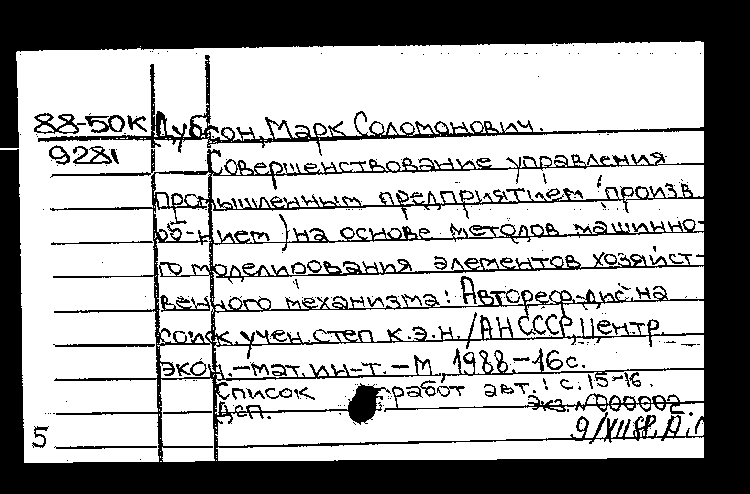 88-50К Дубсон, Марк Соломонович.
9281 Совершенствование управления
промышленным предприятием (произв.
об-нием) на основе методов машинно-
го моделирования элементов хозяйст-
венного механизма: Автореф. дис. на
соиск. учен. степ к.э.н. / АН СССР, Центр.
экон.-мат. ин-т. - М., 1988. - 16с.
Список работ авт.: с. 15-16.
Дсп. Экз. N 000002
5 9/XII 88. А.